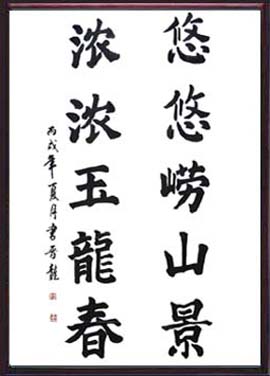 悠悠崂山景
浓浓玉龍春
丙戌年夏月書